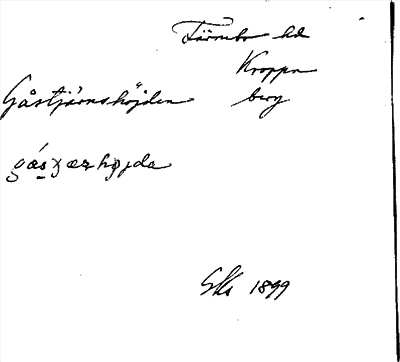 Färnebo hd
Kroppa
Gåstjärnshöjden berg
gás̱ɟærhøjda
Sks 1899